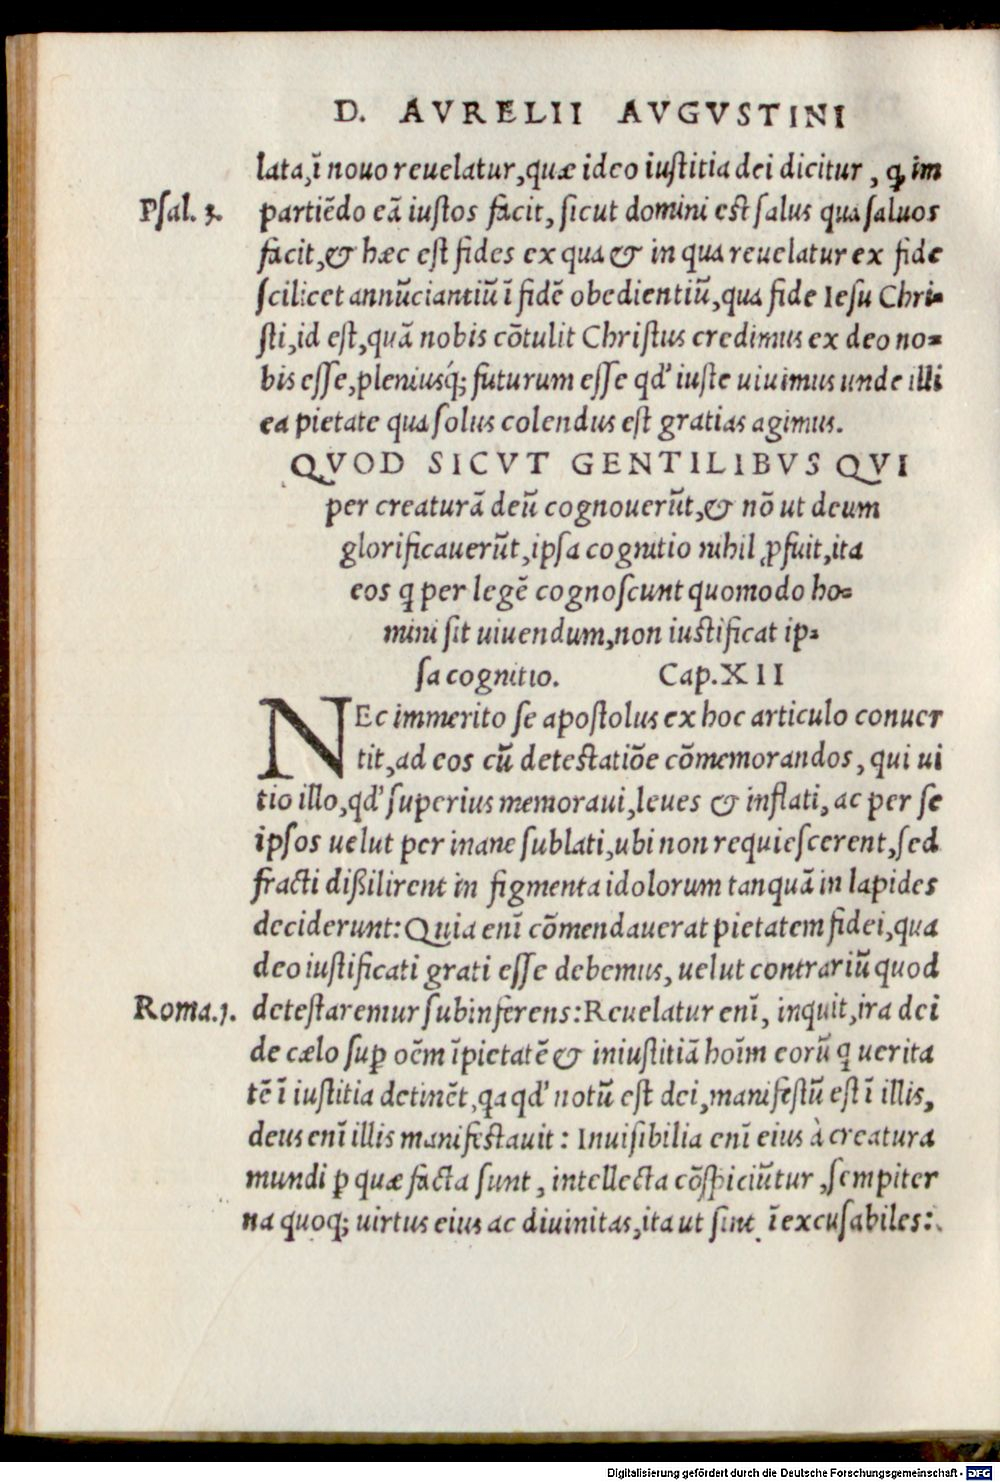 D. AVRELII AVGVSTINI
lata, ĩ nouo reuelatur, quæ ideo iustitia dei dicitur, ꝙ im
Psal. 3. partiẽdo eã iustos facit, sicut domini est salus qua saluos
facit, & hæc est fides ex qua & in qua reuelatur ex fide
scilicet annũciantiũ ĩ fidẽ obedientiũ, qua fide Iesu Chri-
sti, id est, quã nobis cõtulit Christus credimus ex deo no-
bis esse, pleniusq́; futurum esse qd' iuste uiuimus unde illi
ea pietate qua solus colendus est gratias agimus.
QVOD SICVT GENTILIBVS QVI
per creaturã deũ cognouerũt, & nõ ut deum
glorificauerũt, ipsa cognitio nihil ꝓfuit, ita
eos q̃ per legẽ cognoscunt quomodo ho-
mini sit uiuendum, non iustificat ip-
sa cognitio. Cap. XII
NEc immerito se apostolus ex hoc articulo conuer
tit, ad eos cũ detestatiõe cõmemorandos, qui ui
tio illo, qd' superius memoraui, leues & inflati, ac per se
ipsos uelut per inane sublati, ubi non requiescerent, sed
fracti dißilirent in figmenta idolorum tanquã in lapides
deciderunt: Quia enĩ cõmendauerat pietatem fidei, qua
deo iustificati grati esse debemus, uelut contrariũ quod
Roma. 1. detestaremur subinferens: Reuelatur enĩ, inquit, ira dei
de cælo suꝑ oẽm ĩpietatẽ & iniustitiã hoĩm eorũ q̃ uerita
tẽ ĩ iustitia detinẽt, qa qd' notũ est dei, manifestũ est ĩ illis,
deus enĩ illis manifestauit: Inuisibilia enĩ eius à creatura
mundi ꝑ quæ facta sunt, intellecta cõspiciũtur, sempiter
na quoq; uirtus eius ac diuinitas, ita ut sint ĩexcusabiles:
Digitalisierung gefördert durch die Deutsche Forschungsgemeinschaft - DFG